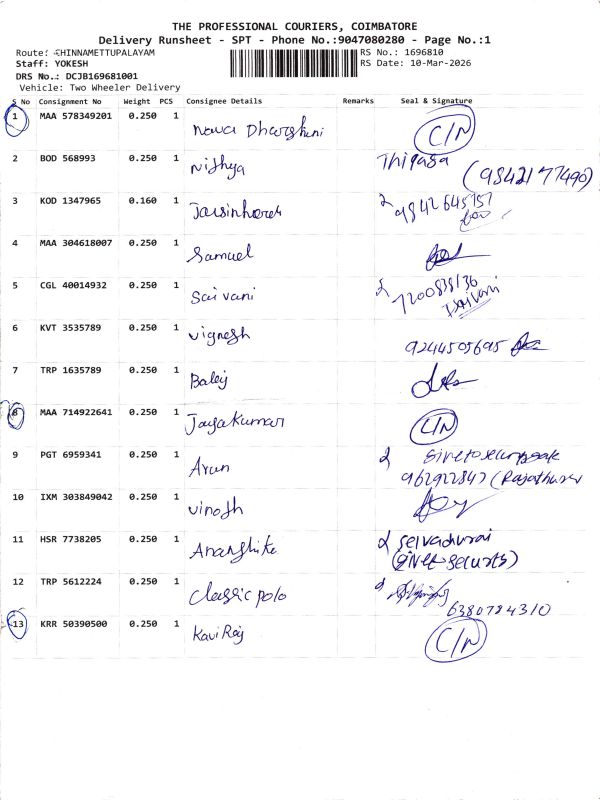 THE PROFESSIONAL COURIERS, COIMBATORE
Delivery Runsheet - SPT - Phone No.:9047080280 - Page No.:1
Route: CHINNAMETTUPALAYAM RS No.: 1696810
Staff: YOKESH RS Date: 10-Mar-2026
DRS No.: DCJB169681001
Vehicle: Two Wheeler Delivery
S No Consignment No Weight PCS Consignee Details Remarks Seal & Signature
1 MAA 578349201 0.250 1 Nava Dharshini C/N
2 BOD 568993 0.250 1 Nithya (9842177490)
3 KOD 1347965 0.160 1 9842645757
4 MAA 304618007 0.250 1 Samuel
5 CGL 40014932 0.250 1 Saivani 7200838136
6 KVT 3535789 0.250 1 Vignesh 9244505695
7 TRP 1635789 0.250 1 Balaji
8 MAA 714922641 0.250 1 Jayakumar C/N
9 PGT 6959341 0.250 1 Arun
10 IXM 303849042 0.250 1 Vinoth
11 HSR 7738205 0.250 1 Selvadurai
12 TRP 5612224 0.250 1 Classic polo
6380784310
13 KRR 50390500 0.250 1 KaviRaj C/N